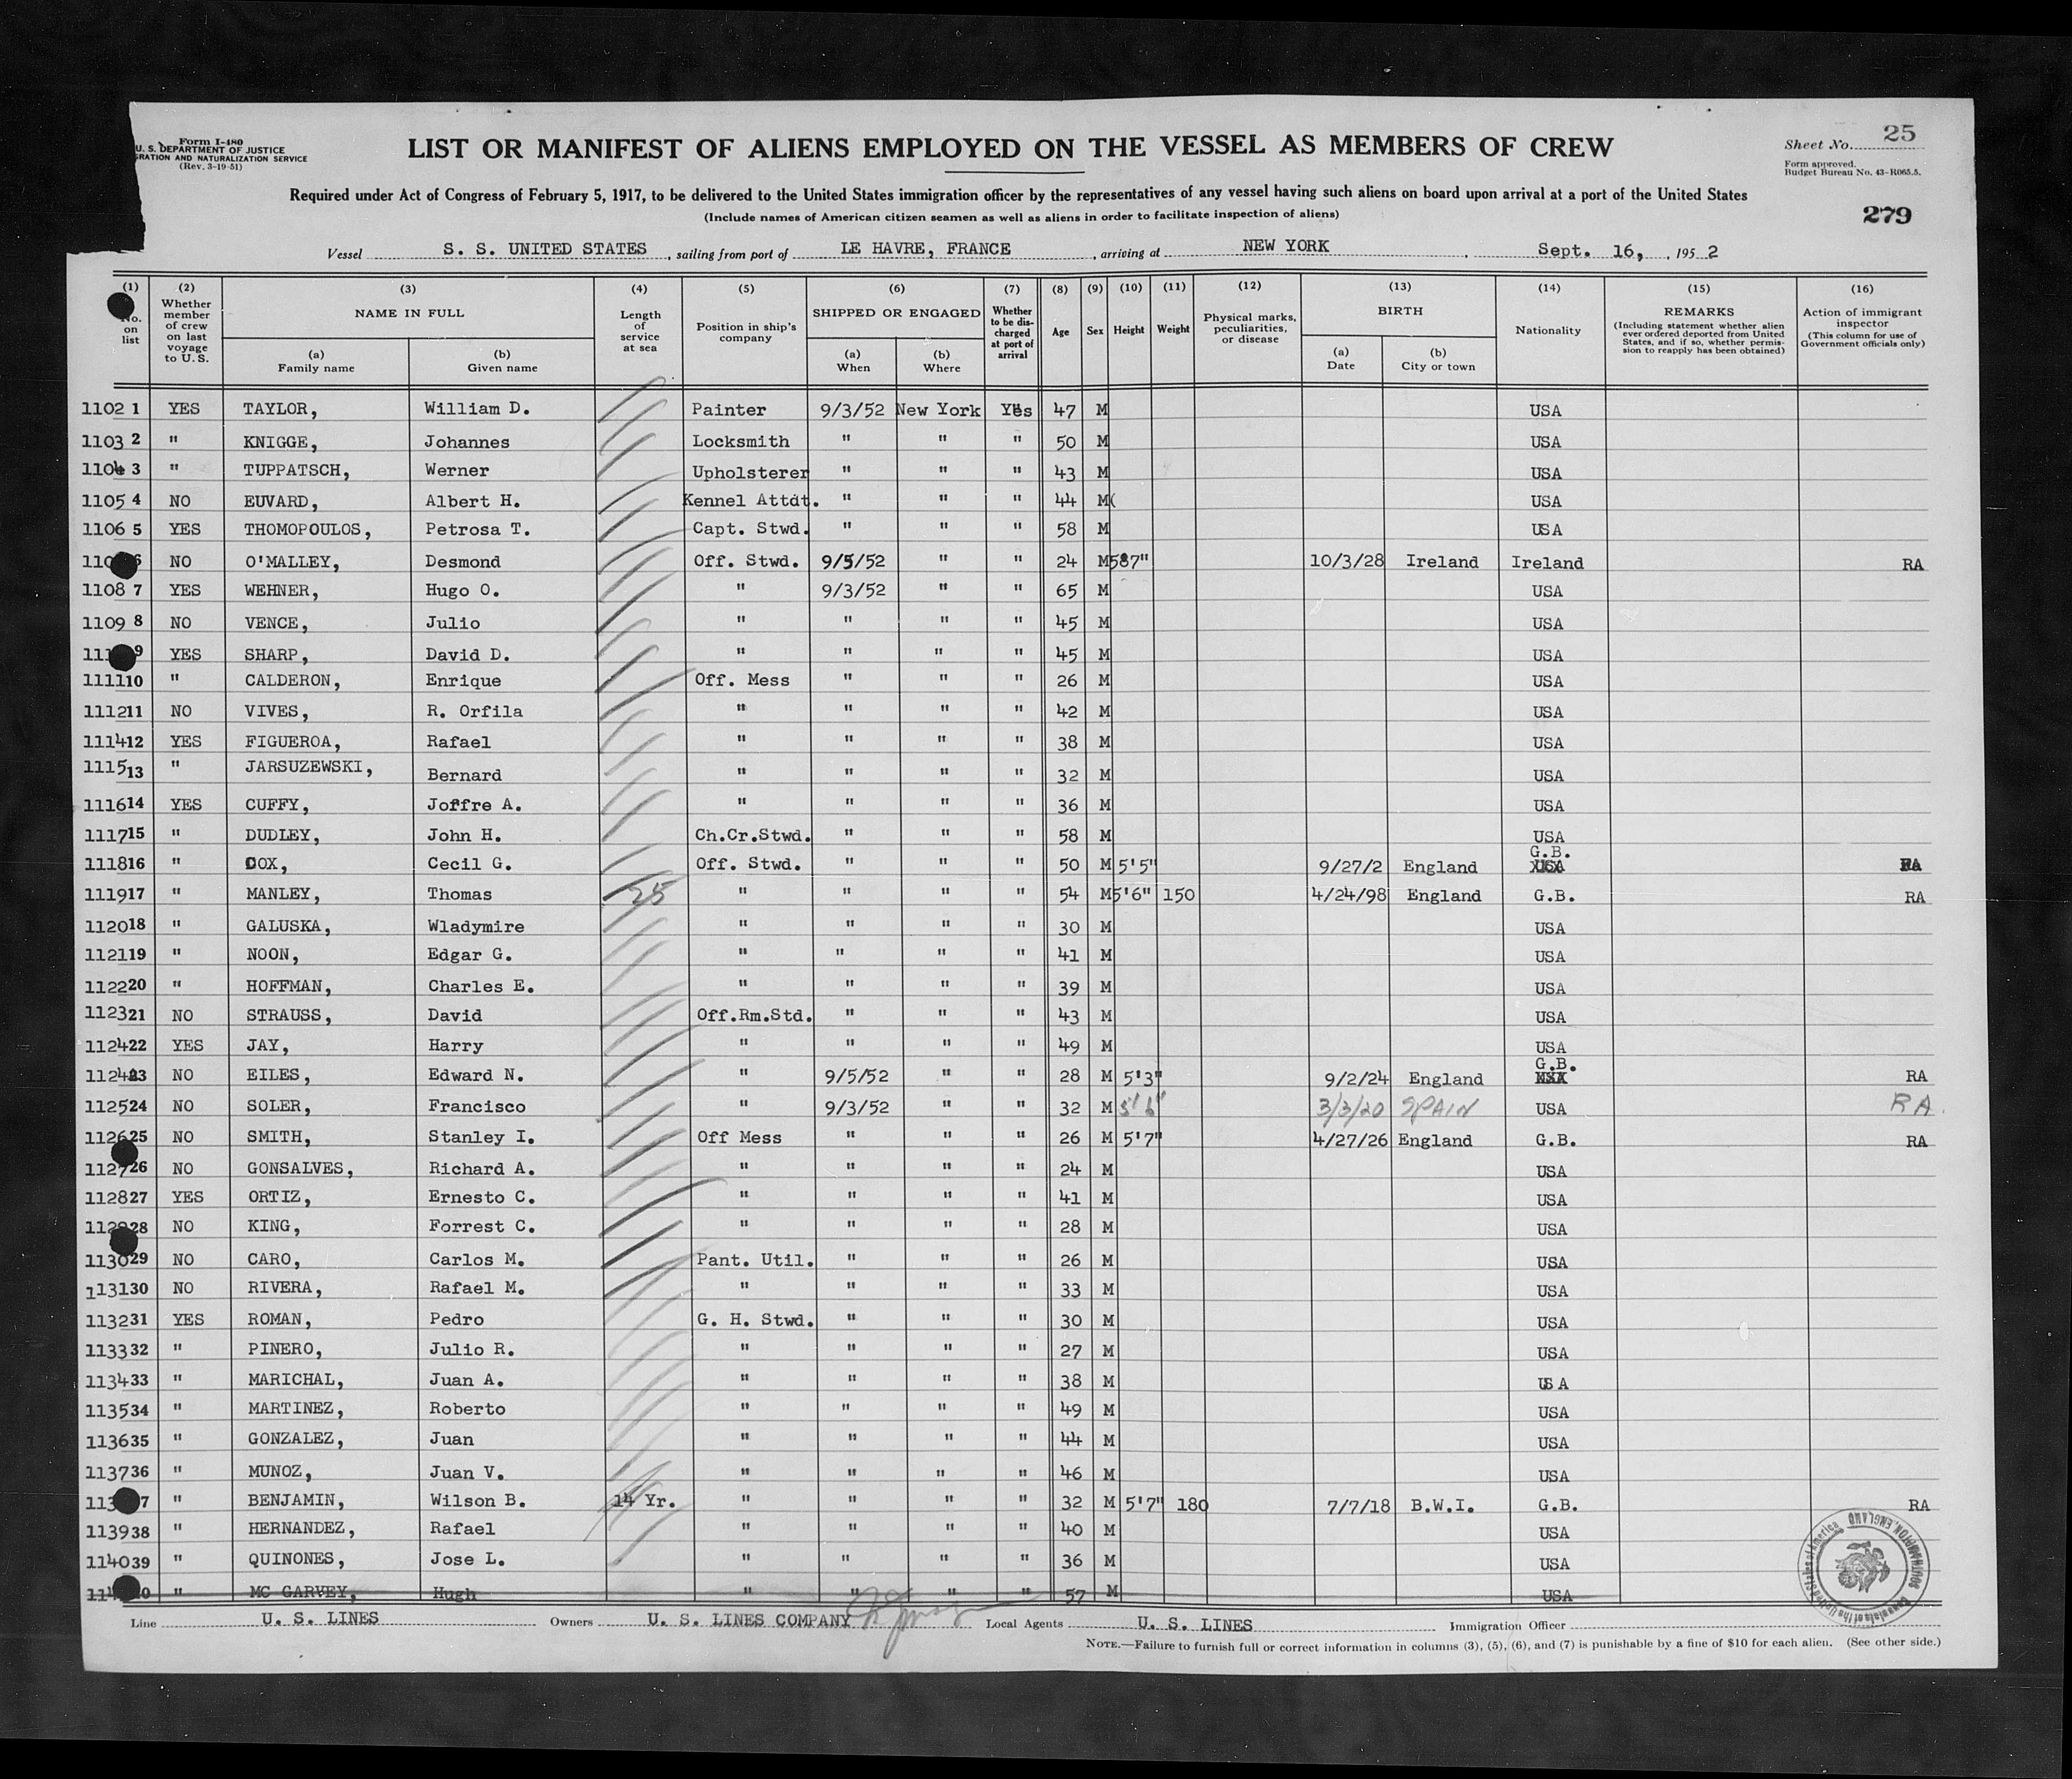 Form I-480
U. S. DEPARTMENT OF JUSTICE
GRATION AND NATURALIZATION SERVICE
(Rev. 3-19-51)
LIST OR MANIFEST OF ALIENS EMPLOYED ON THE VESSEL AS MEMBERS OF CREW
Sheet No. 25
Form approved.
Budget Bureau No. 43-R065.5.
Required under Act of Congress of February 5, 1917, to be delivered to the United States immigration officer by the representatives of any vessel having such aliens on board upon arrival at a port of the United States
(Include names of American citizen seamen as well as aliens in order to facilitate inspection of aliens)
279
Vessel S. S. UNITED STATES, sailing from port of LE HAVRE, FRANCE, arriving at NEW YORK, Sept. 16, 1952
(1) No. on list
(2) Whether member of crew on last voyage to U. S.
(3) NAME IN FULL (a) Family name (b) Given name
(4) Length of service at sea
(5) Position in ship's company
(6) SHIPPED OR ENGAGED (a) When (b) Where
(7) Whether to be discharged at port of arrival
(8) Age
(9) Sex
(10) Height
(11) Weight
(12) Physical marks, peculiarities, or disease
(13) BIRTH (a) Date (b) City or town
(14) Nationality
(15) REMARKS (Including statement whether alien ever ordered deported from United States, and if so, whether permission to reapply has been obtained)
(16) Action of immigrant inspector (This column for use of Government officials only)
1102 1 YES TAYLOR, William D. Painter 9/3/52 New York Yes 47 M USA
1103 2 " KNIGGE, Johannes Locksmith " " " 50 M USA
1104 3 " TUPPATSCH, Werner Upholsterer " " " 43 M USA
1105 4 NO EUVARD, Albert H. Kennel Attdt. " " " 44 M( USA
1106 5 YES THOMOPOULOS, Petrosa T. Capt. Stwd. " " " 58 M USA
6 NO O'MALLEY, Desmond Off. Stwd. 9/5/52 " " 24 M 587" 10/3/28 Ireland Ireland RA
1108 7 YES WEHNER, Hugo O. " 9/3/52 " " 65 M USA
1109 8 NO VENCE, Julio " " " " 45 M USA
9 YES SHARP, David D. " " " " 45 M USA
1111 10 " CALDERON, Enrique Off. Mess " " " 26 M USA
1112 11 NO VIVES, R. Orfila " " " " 42 M USA
1114 12 YES FIGUEROA, Rafael " " " " 38 M USA
1115 13 " JARSUZEWSKI, Bernard " " " " 32 M USA
1116 14 YES CUFFY, Joffre A. " " " " 36 M USA
1117 15 " DUDLEY, John H. Ch.Cr.Stwd. " " " 58 M USA
1118 16 " COX, Cecil G. Off. Stwd. " " " 50 M 5'5" 9/27/2 England G.B. USA RA
1119 17 " MANLEY, Thomas 25 " " " " 54 M 5'6" 150 4/24/98 England G.B. RA
1120 18 " GALUSKA, Wladymire " " " " 30 M USA
1121 19 " NOON, Edgar G. " " " " 41 M USA
1122 20 " HOFFMAN, Charles E. " " " " 39 M USA
1123 21 NO STRAUSS, David Off.Rm.Std. " " " 43 M USA
1124 22 YES JAY, Harry " " " " 49 M USA
1124 23 NO EILES, Edward N. " 9/5/52 " " 28 M 5'3" 9/2/24 England G.B. RA
1125 24 NO SOLER, Francisco " 9/3/52 " " 32 M 5'6" 3/3/20 SPAIN USA RA
1126 25 NO SMITH, Stanley I. Off Mess " " " 26 M 5'7" 4/27/26 England G.B. RA
1127 26 NO GONSALVES, Richard A. " " " " 24 M USA
1128 27 YES ORTIZ, Ernesto C. " " " " 41 M USA
1129 28 NO KING, Forrest C. " " " " 28 M USA
1130 29 NO CARO, Carlos M. Pant. Util. " " " 26 M USA
1131 30 NO RIVERA, Rafael M. " " " " 33 M USA
1132 31 YES ROMAN, Pedro G. H. Stwd. " " " 30 M USA
1133 32 " PINERO, Julio R. " " " " 27 M USA
1134 33 " MARICHAL, Juan A. " " " " 38 M USA
1135 34 " MARTINEZ, Roberto " " " " 49 M USA
1136 35 " GONZALEZ, Juan " " " " 44 M USA
1137 36 " MUNOZ, Juan V. " " " " 46 M USA
7 " BENJAMIN, Wilson B. 14 Yr. " " " " 32 M 5'7" 180 7/7/18 B.W.I. G.B. RA
1139 38 " HERNANDEZ, Rafael " " " " 40 M USA
1140 39 " QUINONES, Jose L. " " " " 36 M USA
0 " MC GARVEY, Hugh " " " " 57 M USA
Line U. S. LINES Owners U. S. LINES COMPANY Local Agents U. S. LINES Immigration Officer
NOTE.—Failure to furnish full or correct information in columns (3), (5), (6), and (7) is punishable by a fine of $10 for each alien. (See other side.)
Consulate of the United States of America SOUTHAMPTON, ENGLAND